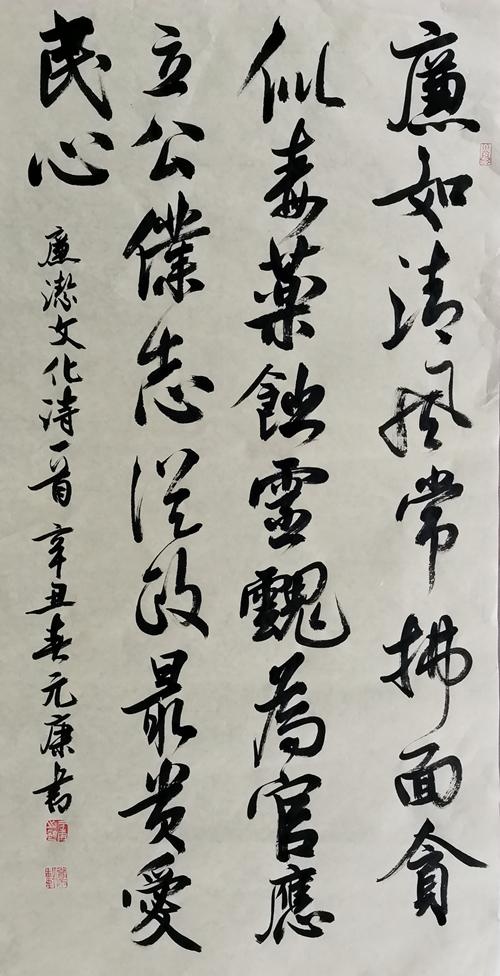 廉如清风常拂面貪
似毒藥蝕靈魂為官應
立公僕志從政最贵愛
民心
廉潔文化诗一首 辛丑春元康書